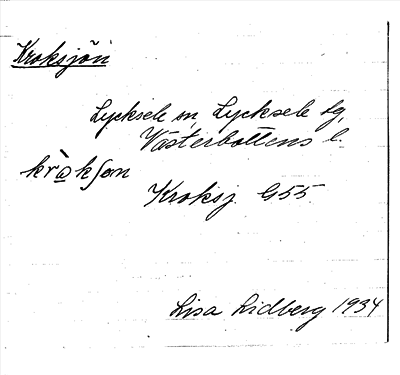 Kroksjön
Lycksele sn, Lycksele lg,
Västerbottens l.
krå̀kʃøn
Kroksj. G55
Lisa Lidberg 1934